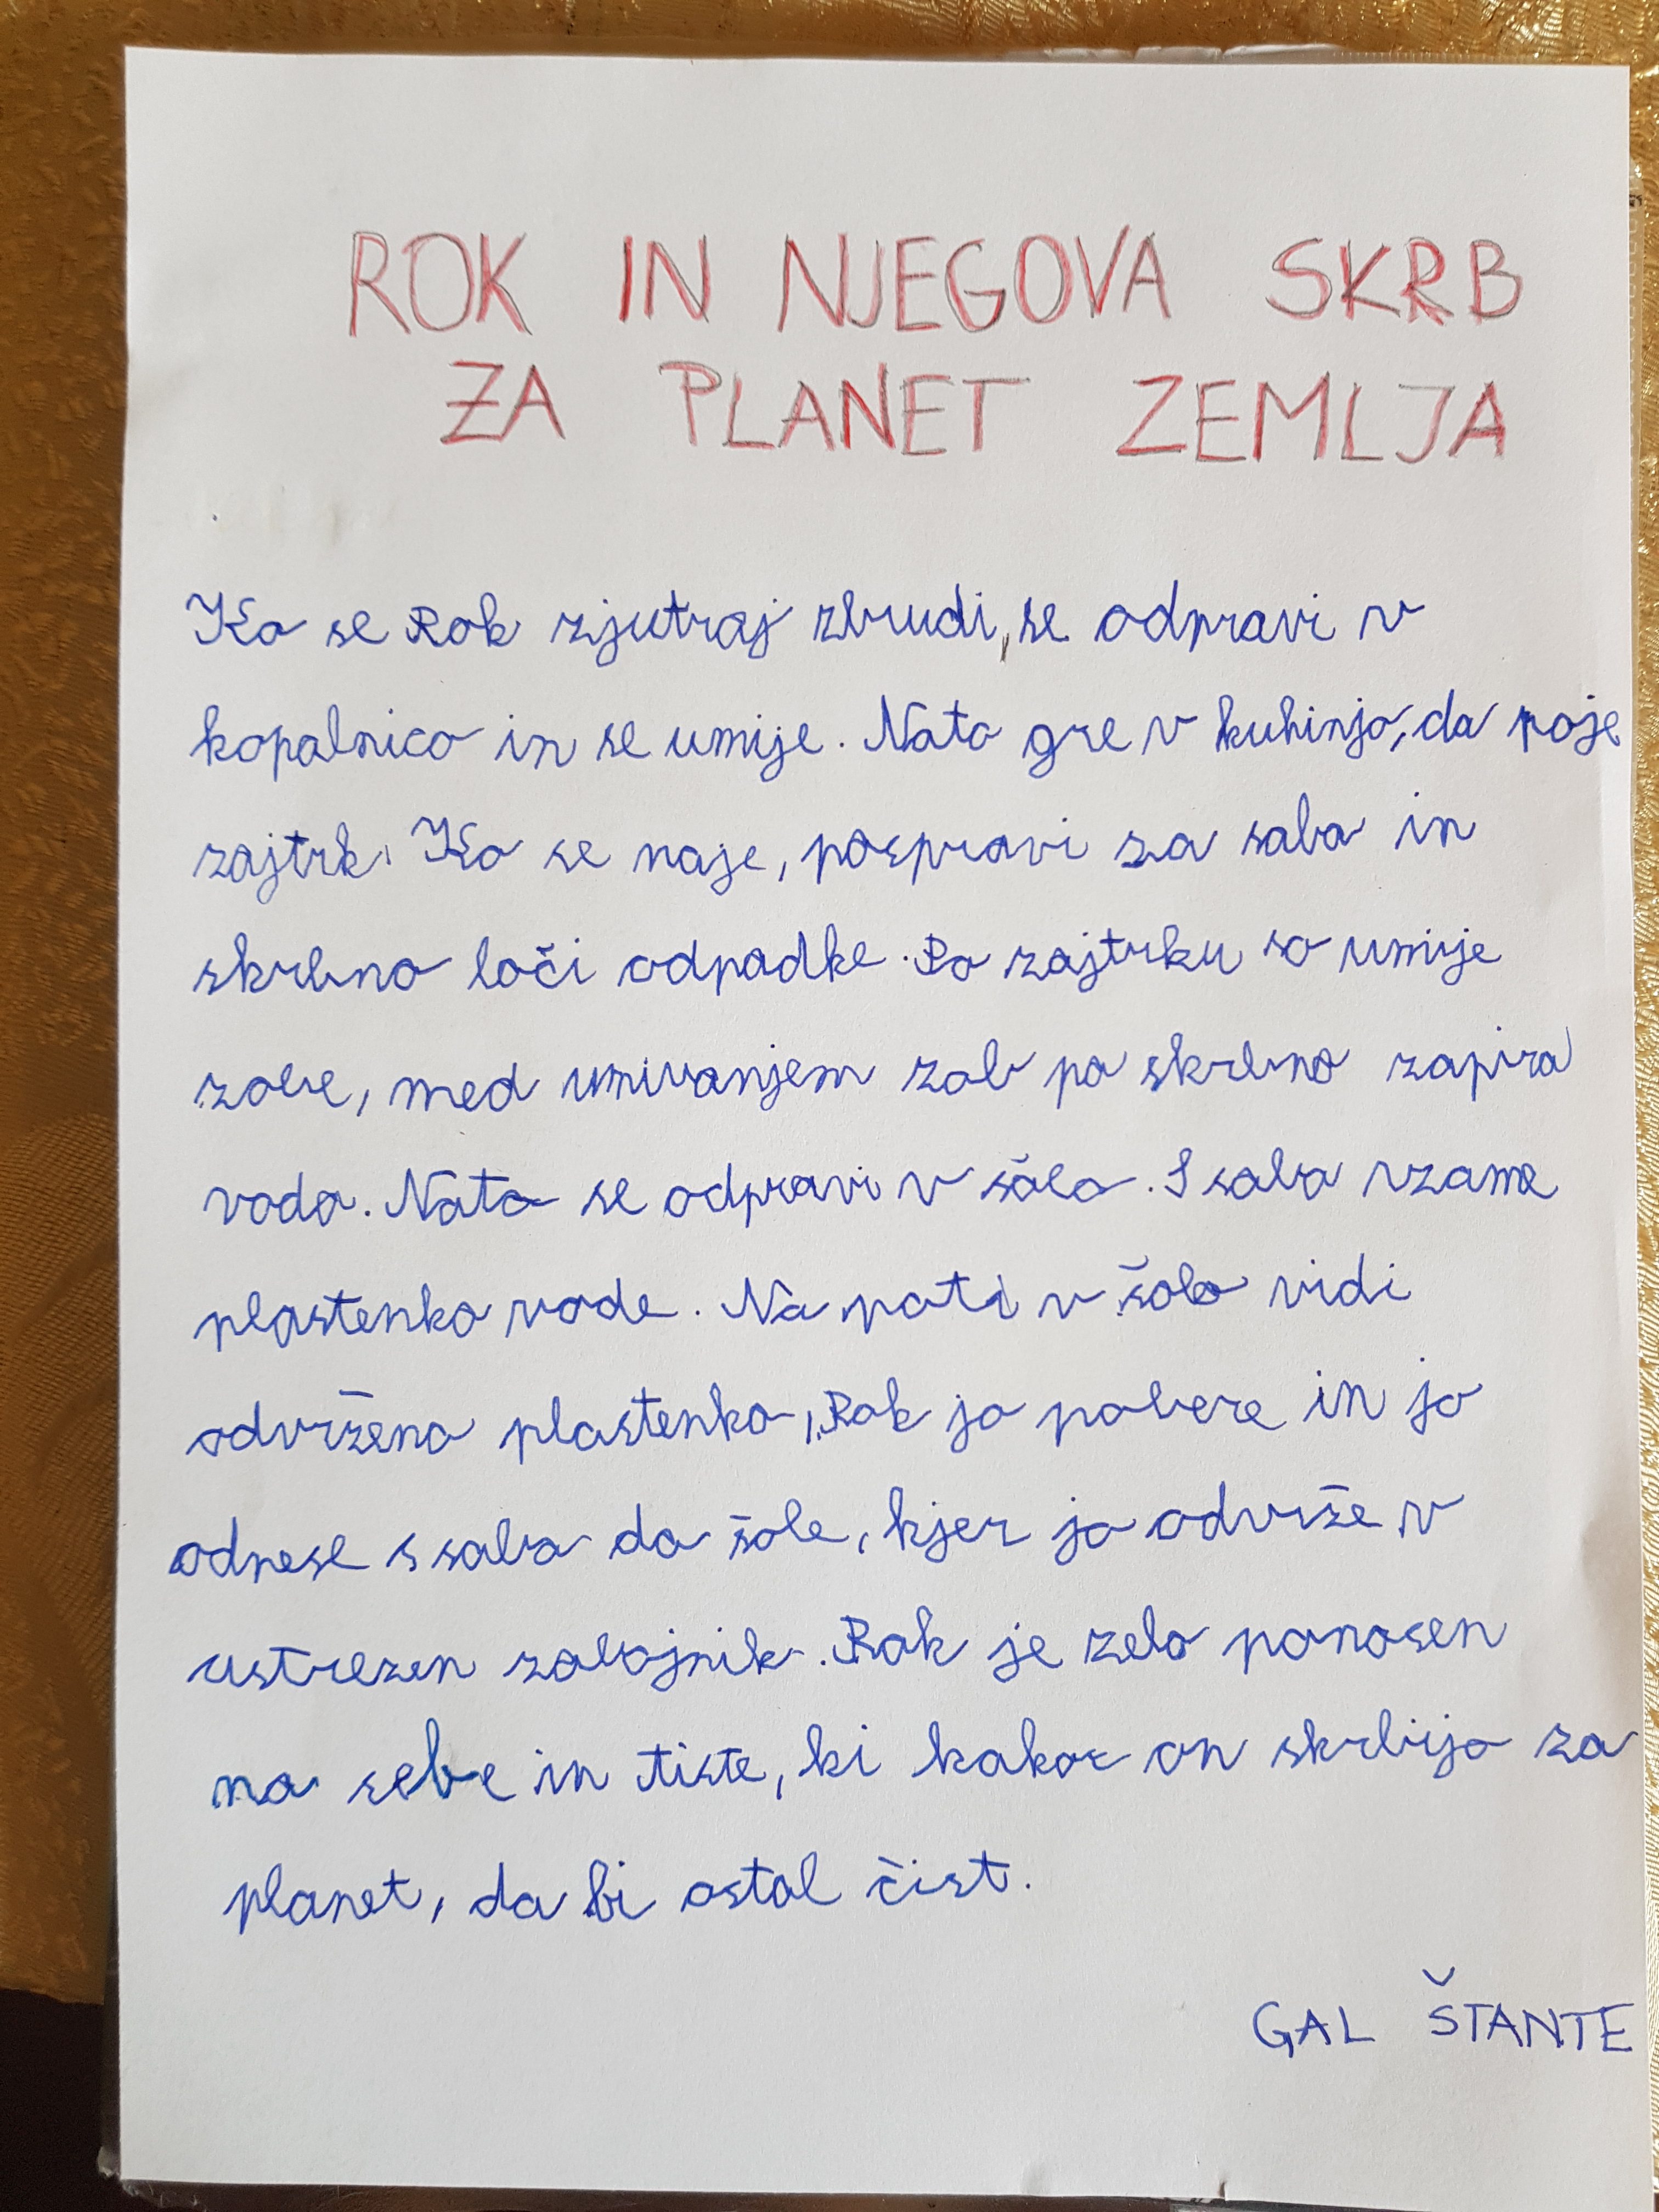 ROK IN NJEGOVA SKRB
ZA PLANET ZEMLJA
Ko se Rok zjutraj zbudi, se odpravi v
kopalnico in se umije. Nato gre v kuhinjo, da poje
zajtrk. Ko se naje, pospravi za sabo in
skrbno loči odpadke. Po zajtrku so umije
zobe, med umivanjem zob pa skrbno zapira
vodo. Nato se odpravi v šolo. S sabo vzame
plastenko vode. Na poti v šolo vidi
odvrženo plastenko, Rok jo pobere in jo
odnese s sabo do šole, kjer jo odvrže v
ustrezen zabojnik. Rok je zelo ponosen
na sebe in tiste, ki kakor on skrbijo za
planet, da bi ostal čist.
GAL ŠTANTE